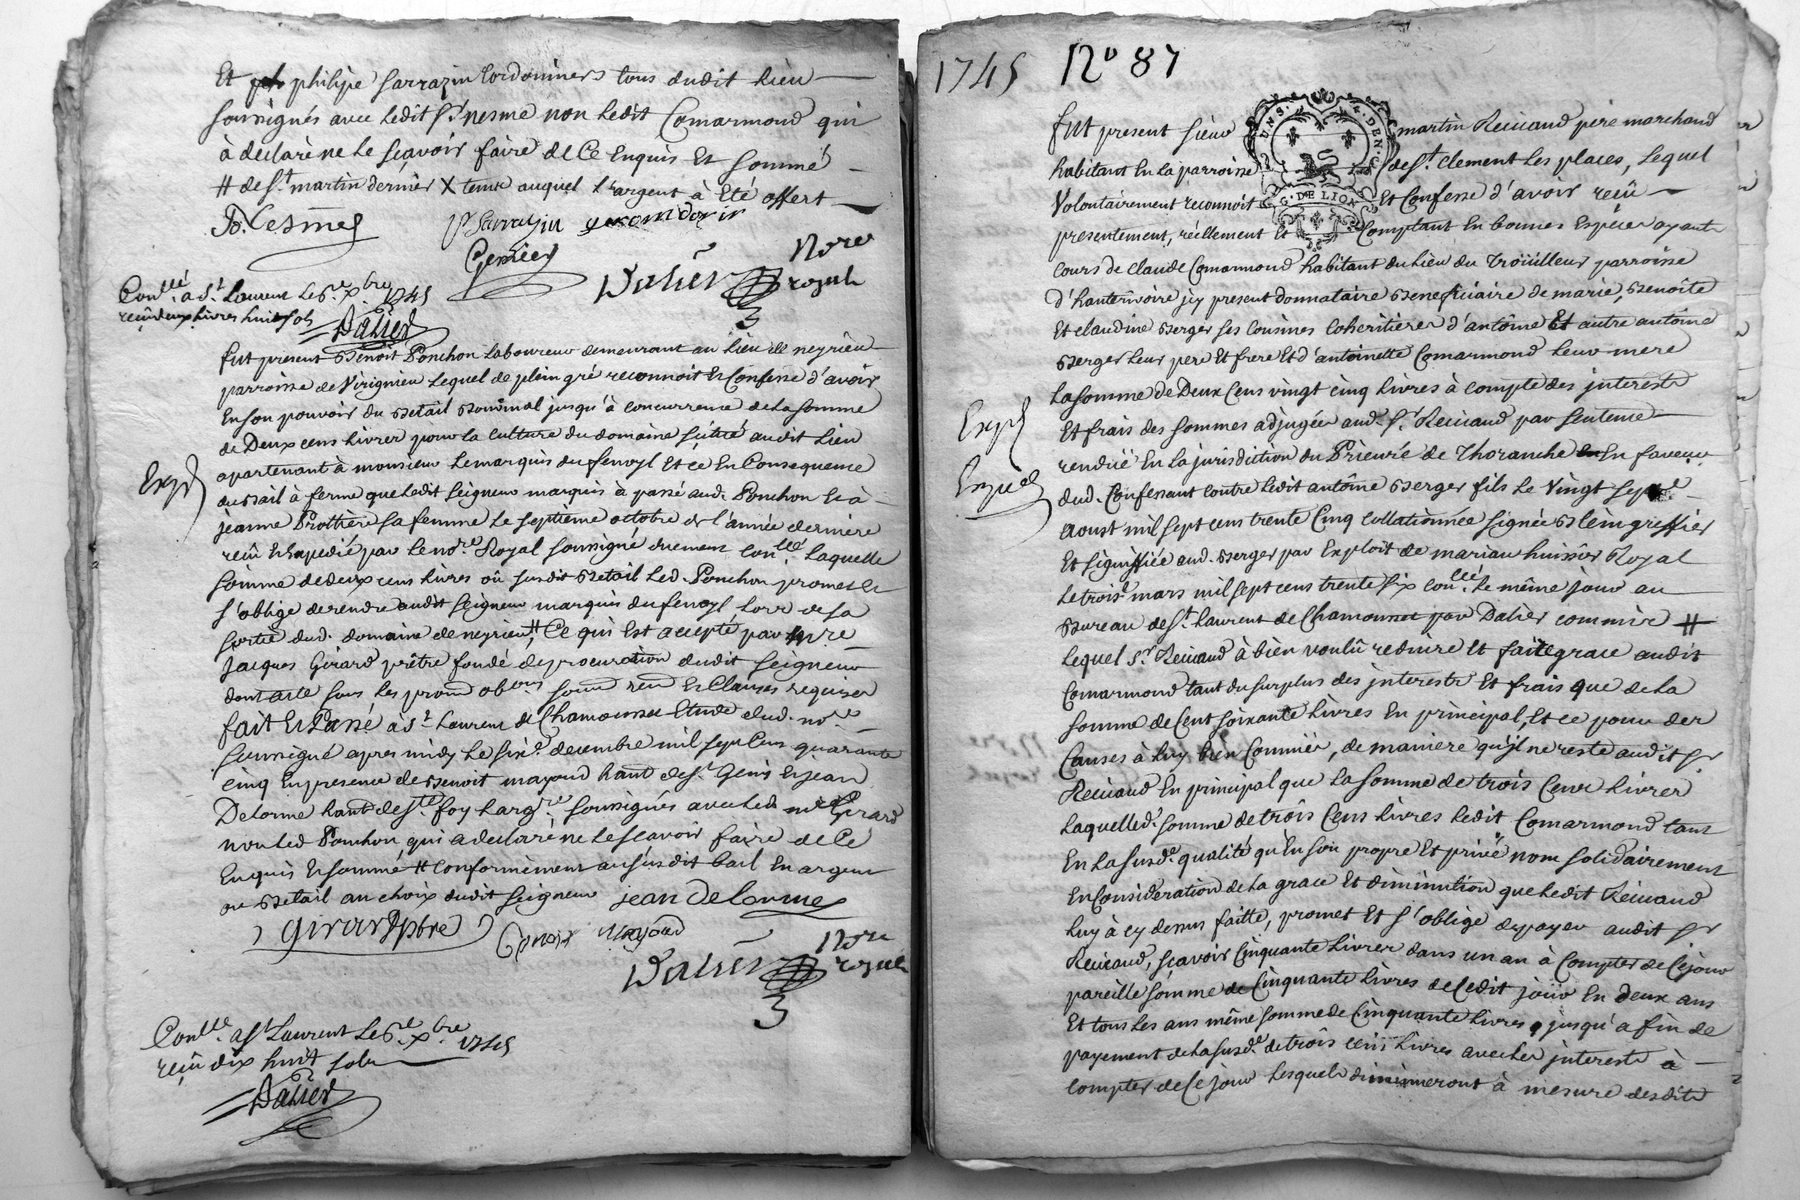 Et philipe Sarrazin Cordonniers tous dudit Lieu
soussignés avec Ledit Sr. nesme non Ledit Comarmond qui
à declaré ne Le sçavoir faire de Ce Enquis Et sommé
# de St. martin dernier X temps auquel L'argent à Eté offert
Nesme
P Sarrazin
Grenier
Dalier Nore royal
Conllé. à St. Laurent Le 6e. Xbre 1745
reçû deux Livres huit sols
Dalier
Fut present Benoit Ponchon Laboureur demeurant au Lieu de neyrieu
parroisse de Virignieu Lequel de plein gré reconnoit Et Confesse d'avoir
En son pouvoir du Betail Bouvinal jusqu'à concurrence de La somme
de Deux cens Livres pour La Culture du domaine scitué audit Lieu
apartenant à monsieur Le marquis du fenoyl Et ce En Consequence
du Bail à ferme que Ledit seigneur marquis à passé aud. Ponchon Et à
jeanne Prothere sa femme Le septième octobre de L'année derniere
reçû Et Expedié par Le nore. Royal soussigné duement Conllé Laquelle
somme de deux cens Livres où susdit Betail Led. Ponchon promet Et
s'oblige de rendre audit seigneur marquis du fenoyl Lors de sa
sortie dud. domaine de neyrieu # Ce qui Est accepté par mre
Jacques Girard prêtre fondé de procuration dudit seigneur
dont acte sous Les promd obons soumd rend Et Clauses requises
fait Et Passé à St. Laurent de Chamousset Etude dud. nore
soussigné apres midy Le six decembre mil sept Cens quarante
cinq En presence de Benoit mazoud hant de St. Genis Et jean
Delorme hant de Ste. foy Largre. soussignés avec Led. mre Girard
non Led. Ponchon qui a declaré ne Le sçavoir faire de Ce
Enquis Et sommé # Conformement au susdit bail En argent
ou Betail au choix dudit seigneur jean Delorme
Girard pbre
Benoit Mazoud
Dalier Nore royal
Conllé. a St Laurent Le 6e. Xbre 1745
reçû dix huit sols
Dalier
1745 No 87
Fut present sieur martin Reinaud père marchand
habitant En La parroisse de St. clement Les places, Lequel
Volontairement reconnoit Et Confesse d'avoir reçû
presentement, réellement Et Comptant En bonnes Espèces ayant
G. DE LION
cours de Claude Comarmond habitant du Lieu du Troüilleur parroisse
d'hauterivoire jcy present donnataire Beneficiaire de marie, Benoîte
Et claudine Berger ses cousines Coheritieres d'antoine Et autre antoine
Berger Leur pere Et frere Et d'antoinette Comarmond Leur mere
La somme de Deux Cens vingt cinq Livres à compte des jnterests
Et frais des sommes adjugées aud. Sr. Reinaud par sentence
Expd
rendüe En La jurisdiction du Prieuré de Thoranche En faveur
dud. Confessant contre Ledit antoine Berger fils Le Vingt sept
aoust mil sept cens trente Cinq collationnée signée greffier
Et signiffiée aud. Berger par Exploit de huissier Royal
Le trois mars mil sept cens trente six conllé. Le même jour au
Bureau de St. Laurent de Chamousset par Dalier commire #
Lequel Sr. Reinaud à bien voulû reduire Et faire grace audit
Comarmond tant du surplus des jnterests Et frais que de La
somme de Cent soixante Livres En principal, Et ce pour des
Causes à Luy bien Connües, de maniere qu'jl ne reste audit Sr
Reinaud En principal que La somme de trois Cens Livres
Laquelled. somme de trois Cens Livres Ledit Comarmond tant
En La susde. qualité qu'En son propre Et privé nom solidairement
En Consideration de La grace Et diminution que Ledit Reinaud
Luy à cy dessus faitte, promet Et s'oblige de payer audit Sr
Reinaud, sçavoir Cinquante Livres dans un an à Compter de Ce jour
pareille somme de Cinquante Livres de Cedit jour En deux ans
Et tous Les ans même somme de Cinquante Livres jusqu'a fin de
payement de La susde. de trois cens Livres avec Les jnterests à
compter de Ce jour Lesquels diminueront à mesure desdits